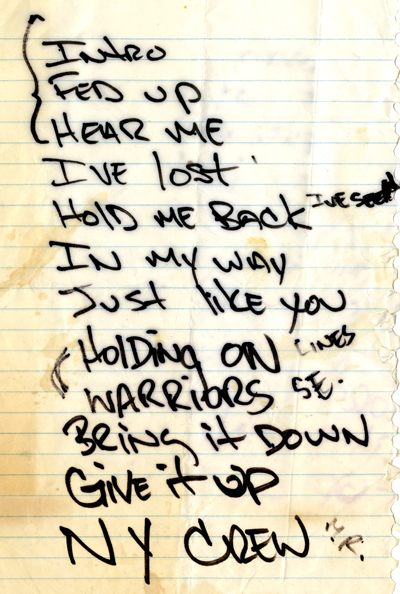 Intro
FED UP
HEAR ME
I'VE lost
HOLD ME BACK I'VE SEEN
IN MY WAY
Just like you
HOLDING ON LINES
WARRIORS S.E.
BRING it DOWN
GIVE it UP
NY CREW